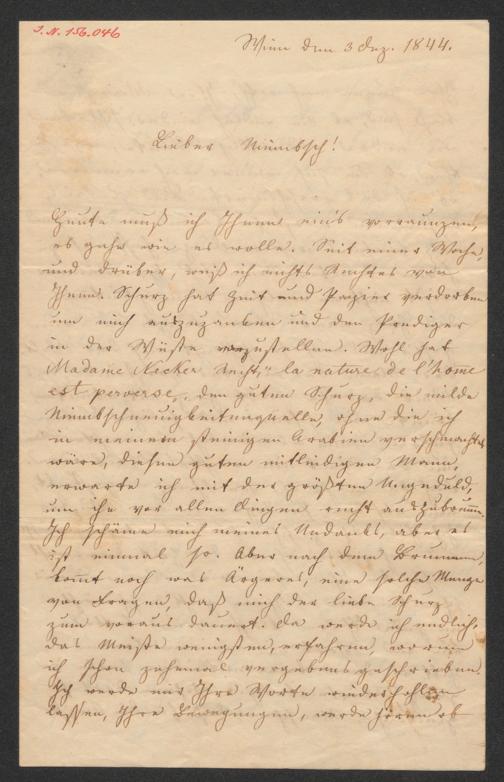 J. N. 156.046
Wien den 3 Dez. 1844.
Lieber Niembsch!
Heute muß ich Ihnen eins vorraunzen,
es gehe wie es wolle. Seit einer Woche,
und drüber, weiß ich nichts Rechtes von
Ihnen. Schurz hat Zeit und Papier verdorben
um mich auszuzanken und den Prediger
in der Wüste vorzustellen. Wohl hat
Madame Necker Recht: „la nature de l'home
est perverse„. den guten Schurz, die milde
Niembschneuigkeitenquelle, ohne die ich
in meinem steinigen Arabien verschmachtet
wäre, diesen guten mitleidigen Mann,
erwarte ich mit der größten Ungeduld,
um ihn vor allen Dingen recht auszubrumm.
Ich schäme mich meines Undanks, aber es
ist einmal so. Aber nach dem Brummen,
kommt noch was Ärgeres, eine solche Menge
von Fragen, daß mich der liebe Schurz
zum voraus dauert. Da werde ich endlich,
das Meiste wengsten, erfahren, worum
ich schon zehnmal vergebens geschrieben.
Ich werde mir Ihre Worte wiederhohlen
lassen, Ihre Bewegungen, werde hören ob